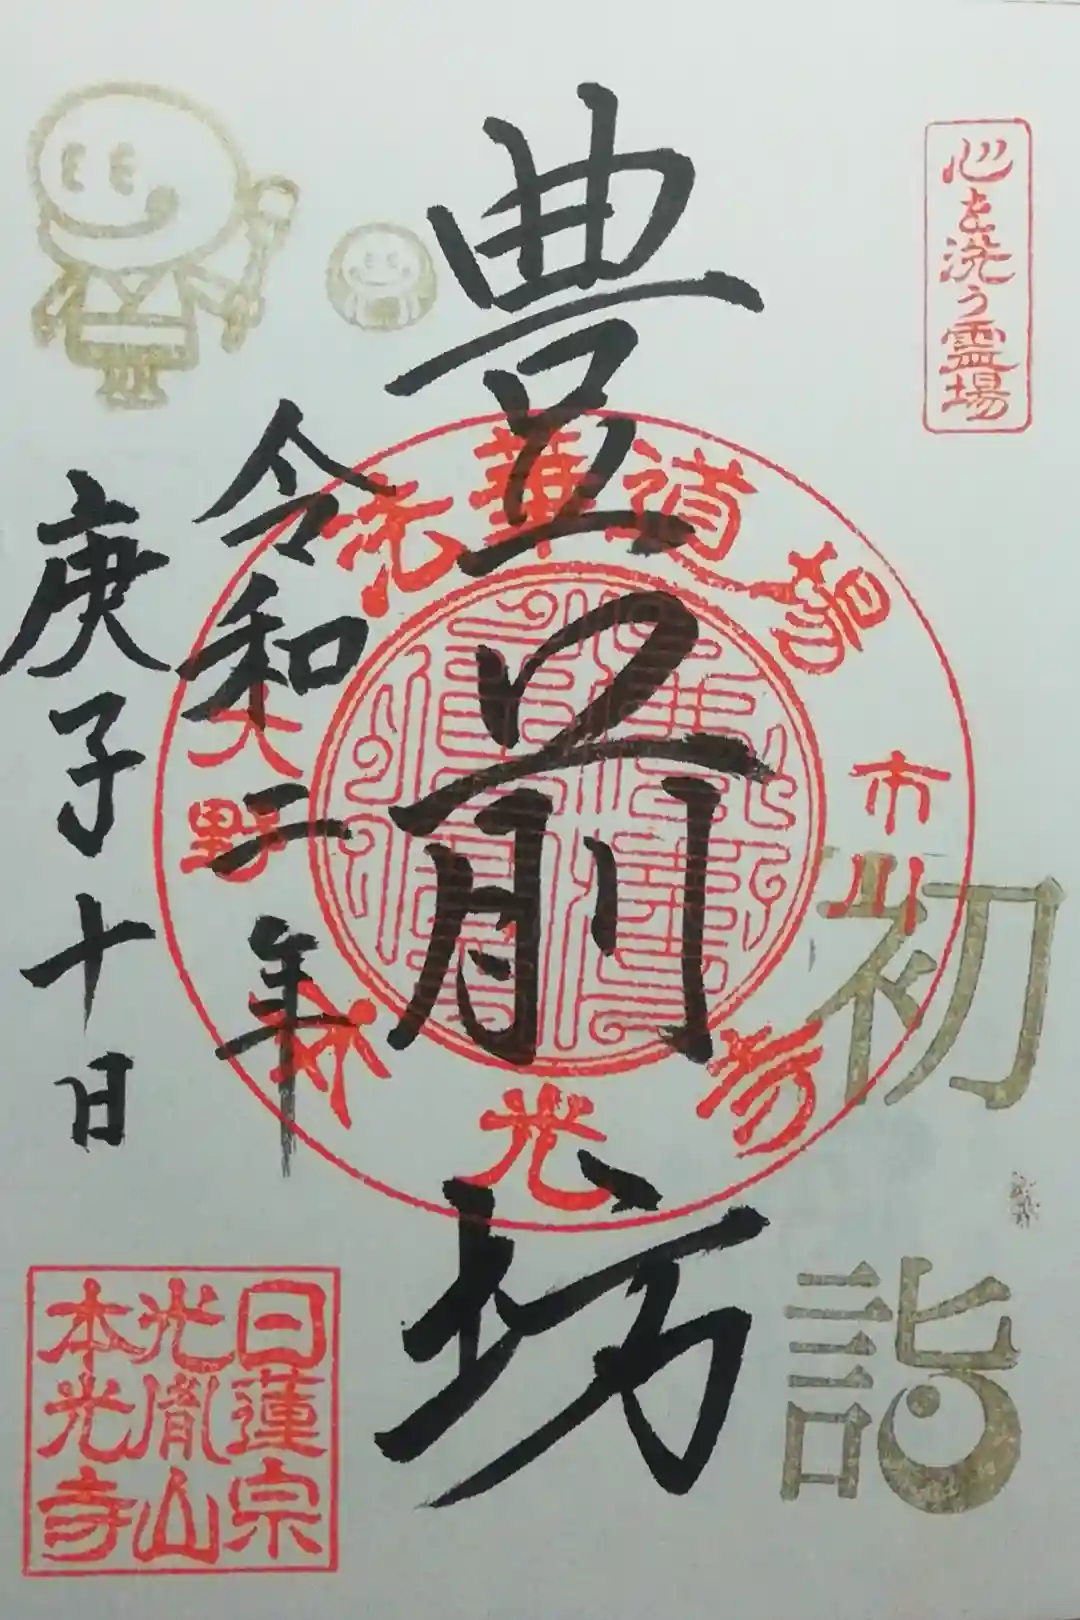 心を洗う霊場
初詣
豊前坊
令和二年
庚子十日
法華道場
市川
大野
本光寺
日蓮宗
光胤山
本光寺